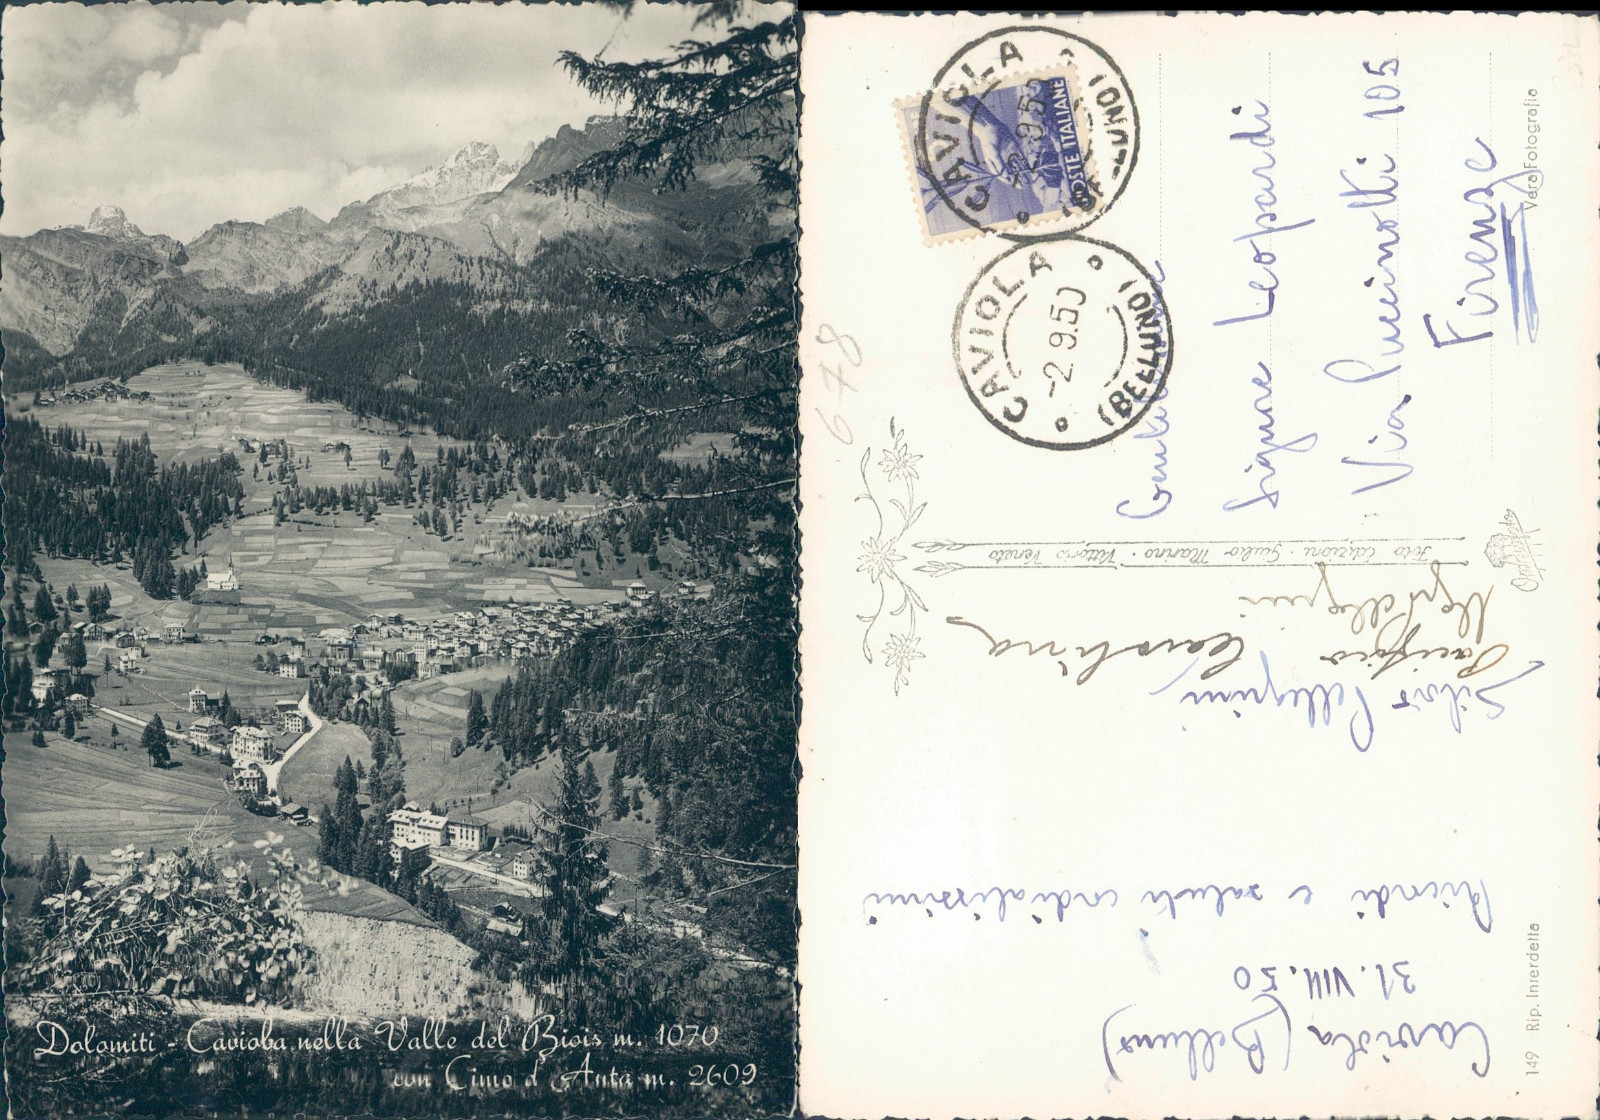 Dolomiti - Caviola nella Valle del Biois m. 1070
con Cimo d'Auta m. 2609
CAVIOLA
-2.9.50
(BELLUNO)
POSTE ITALIANE
CAVIOLA
-2.9.50
(BELLUNO)
Signore Leopardi
Via Puccinotti 105
Firenze
Vera Fotografia
678
Foto Edizioni - Giulio Marino - Vittorio Veneto
Caviola (Belluno)
31.VIII.50
Ricordi e saluti cordialissimi
Silvio Pellegrini
Pacifico
Carolina
149 Rip. Interdetta